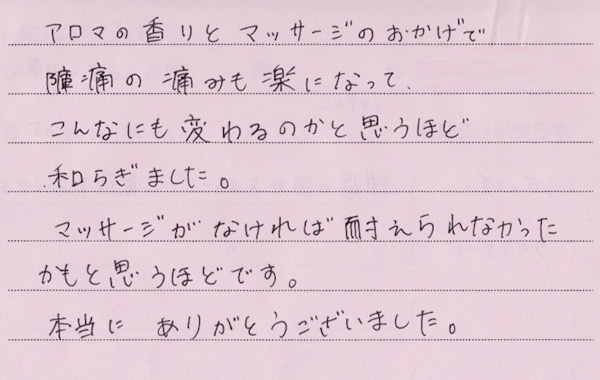 アロマの香りと マッサージのおかげで
陣痛の 痛みも 楽になって、
こんなにも 変わるのかと思うほど
和らぎました。
マッサージが なければ 耐えられなかった
かもと思うほどです。
本当に ありがとうございました。